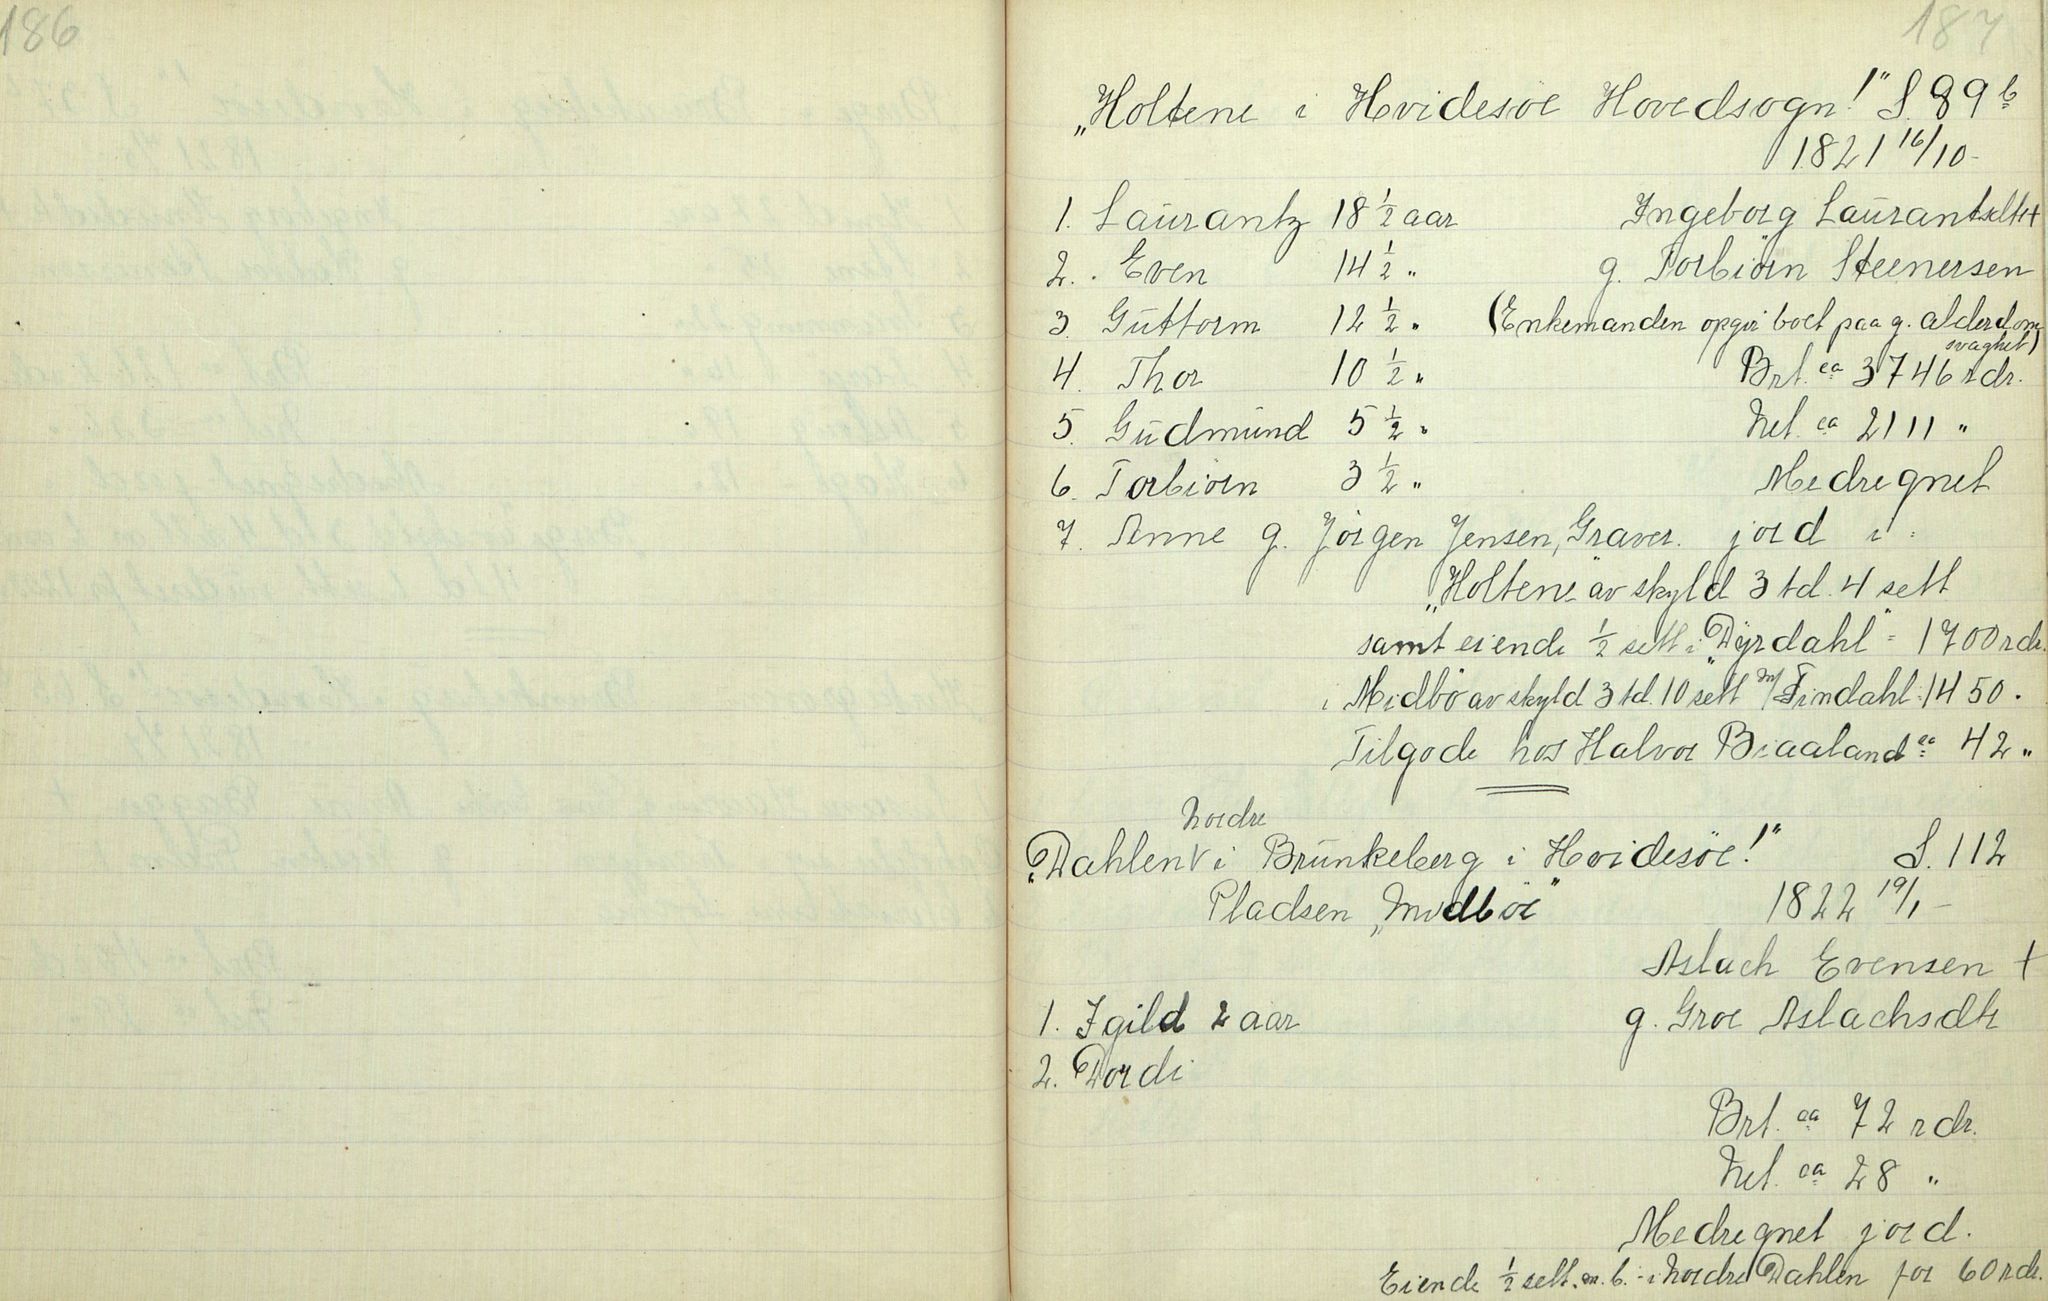 186
187
„Holtene i Hvidesöe Hovedsogn!" S. 89 b
1821 16/10-
1. Laurantz 18 1/2 aar Ingeborg Laurantsdtr +
2. Even 14 1/2 " g. Torbiörn Steenersen
3. Guttorm 12 1/2 " (Enkemanden opgir boet paa g. alderdom
svaghet)
4. Thor 10 1/2 " Brt. ca 3746 rdr.
5. Gudmund 5 1/2 " Net. ca 2111 "
6. Torbiörn 3 1/2 " Medregnet
7. Anne g. Jörgen Jensen, Graver. jord i:
„Holtene" av skyld 3 td. 4 sett
samt eiende 1/2 sett i „Dyrdahl" = 1700 rdr.
i Midbö av skyld 3 td. 10 sett m/ Findahl = 1450.
Tilgode hos Halvor Biaaland ca 42 "
Nordre
„Dahlen V i Brunkeberg i Hvidesöe!" S. 112
Pladsen „Midböe" 1822 19/1-
Aslach Evensen +
1. Igild 2 aar g. Groe Aslachsdtr
2. Dordi
Brt. ca 72 rdr.
Net. ca 28 "
Medregnet jord.
Eiende 1/2 sett. m. b. i Nordre Dahlen for 60 rdr.